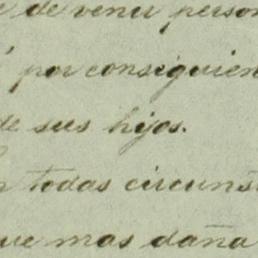 e de venir person
y por consiguien
de sus hijos.
n todas circunst
ue mas daña